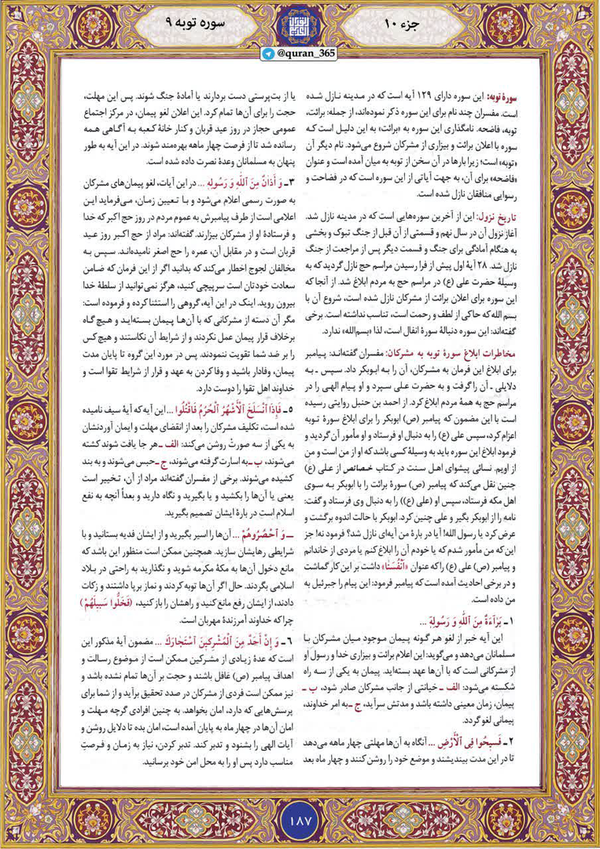 سوره توبه ۹
جزء ۱۰
@quran_365
سورۀ توبه: این سوره دارای ۱۲۹ آیه است که در مدینه نازل شده
است. مفسران چند نام برای این سوره ذکر نموده‌اند، از جمله: برائت،
توبه، فاضحه. نامگذاری این سوره به «برائت» به این دلیل است که
سوره با اعلان برائت و بیزاری از مشرکان شروع می‌شود. نام دیگر آن
«توبه» است؛ زیرا بارها در آن سخن از توبه به میان آمده است و عنوان
«فاضحه» برای آن، به جهت آیاتی از این سوره است که در فضاحت و
رسوایی منافقان نازل شده است.
تاریخ نزول: این از آخرین سوره‌هایی است که در مدینه نازل شد.
آغاز نزول آن در سال نهم و قسمتی از آن قبل از جنگ تبوک و بخشی
به هنگام آمادگی برای جنگ و قسمت دیگر پس از مراجعت از جنگ
نازل شد. ۲۸ آیۀ اول پیش از فرا رسیدن مراسم حج نازل گردید که به
وسیلۀ حضرت علی (ع) در مراسم حج به مردم ابلاغ شد. از آنجا که
این سوره برای اعلان برائت از مشرکان نازل شده است، شروع آن با
بسم‌الله که حاکی از لطف و رحمت است، تناسب نداشته است. برخی
گفته‌اند: این سوره دنبالۀ سورۀ انفال است، لذا «بسم‌الله» ندارد.
مخاطرات ابلاغ سورۀ توبه به مشرکان: مفسران گفته‌اند: پیامبر
برای ابلاغ این فرمان به مشرکان، آن را به ابوبکر داد. سپس ـ به
دلایلی ـ آن را گرفت و به حضرت علی سپرد و او پیام الهی را در
مراسم حج به همۀ مردم ابلاغ کرد. از احمد بن حنبل روایتی رسیده
است با این مضمون که پیامبر (ص) ابوبکر را برای ابلاغ سورۀ توبه
اعزام کرد، سپس علی (ع) را به دنبال او فرستاد و او مأمور آن گردید و
فرمود ابلاغ این سوره باید به وسیلۀ کسی باشد که او از من است و من
از اویم. نسائی پیشوای اهل سنت در کتاب خصائص از علی (ع)
چنین نقل می‌کند که پیامبر (ص) سورۀ برائت را با ابوبکر به سوی
اهل مکه فرستاد، سپس او (علی (ع)) را به دنبال وی فرستاد و گفت:
نامه را از ابوبکر بگیر و علی چنین کرد. ابوبکر با حالت اندوه برگشت و
عرض کرد یا رسول الله! آیا در بارۀ من آیه‌ای نازل شد؟ فرمود نه! جز
این که من مأمور شدم که یا خودم آن را ابلاغ کنم یا مردی از خاندانم
و پیامبر (ص) علی (ع) را که عنوان «أَنْفُسَنا» داشت بر این کار گماشت
و در برخی احادیث آمده است که پیامبر فرمود: این پیام را جبرئیل به
من داده است.
۱ـ بَرَاءَةٌ مِنَ ٱللَّهِ وَ رَسُولِهِ ...
این آیه خبر از لغو هر گونه پیمان موجود میان مشرکان با
مسلمانان می‌دهد و می‌گوید: این اعلام برائت و بیزاری خدا و رسول او
از مشرکانی است که با آن‌ها عهد بسته‌اید. پیمان به یکی از سه راه
شکسته می‌شود: الف ـ خیانتی از جانب مشرکان صادر شود، ب ـ
پیمان، زمان معینی داشته باشد و مدتش سرآید، ج ـ به امر خداوند،
پیمانی لغو گردد.
۲ـ فَسِيحُوا فِي ٱلْأَرْضِ ... آنگاه به آن‌ها مهلتی چهار ماهه می‌دهد
تا در این مدت بیندیشند و موضع خود را روشن کنند و چهار ماه بعد
یا از بت‌پرستی دست بردارند یا آمادۀ جنگ شوند. پس این مهلت،
حجت را برای آن‌ها تمام کرد. این اعلان لغو پیمان، در مرکز اجتماع
عمومی حجاز در روز عید قربان و کنار خانۀ کعبه به آگاهی همه
رسانده شد تا از فرصت چهار ماهه بهره‌مند شوند. در این آیه به طور
پنهان به مسلمانان وعدۀ نصرت داده شده است.
۳ـ وَ أَذَانٌ مِنَ ٱللَّهِ وَ رَسُولِهِ ... در این آیات، لغو پیمان‌های مشرکان
به صورت رسمی اعلام می‌شود و با تعیین زمان، می‌فرماید این
اعلامی است از طرف پیامبرش به عموم مردم در روز حج اکبر که خدا
و فرستادۀ او از مشرکان بیزارند. گفته‌اند: مراد از حج اکبر روز عید
قربان است و در مقابل آن، عمره را حج اصغر نامیده‌اند. سپس به
مخالفان لجوج اخطار می‌کند که بدانید اگر از این فرمان که ضامن
سعادت خودتان است سرپیچی کنید، هرگز نمی‌توانید از سلطۀ خدا
بیرون روید. اینک در این آیه، گروهی را استثنا کرده و فرموده است:
مگر آن دسته از مشرکانی که با آن‌ها پیمان بسته‌اید و هیچ گاه
برخلاف قرار پیمان عمل نکردند و از شرایط آن نکاستند و هیچ کس
را بر ضد شما تقویت ننمودند. پس در مورد این گروه تا پایان مدت
پیمان، وفادار باشید و وفا کردن به عهد و قرار از شرایط تقوا است و
خداوند اهل تقوا را دوست دارد.
۵ـ فَإِذَا ٱنْسَلَخَ ٱلْأَشْهُرُ ٱلْحُرُمُ فَٱقْتُلُوا ... این آیه که آیۀ سیف نامیده
شده است، تکلیف مشرکان را بعد از انقضای مهلت و ایمان آوردنشان
به یکی از سه صورت روشن می‌کند: الف ـ هر جا یافت شوند کشته
می‌شوند، ب ـ به اسارت گرفته می‌شوند، ج ـ حبس می‌شوند و به بند
کشیده می‌شوند. برخی از مفسران گفته‌اند مراد از آن، تخییر است
یعنی یا آن‌ها را بکشید و یا بگیرید و نگاه دارید و بعداً آنچه به نفع
اسلام است در بارۀ ایشان تصمیم بگیرید.
ـ وَ ٱحْصُرُوهُمْ ... آن‌ها را اسیر بگیرید و از ایشان فدیه بستانید و با
شرایطی رهایشان سازید. همچنین ممکن است منظور این باشد که
مانع دخول آن‌ها به مکۀ مکرمه شوید و نگذارید به راحتی در بلاد
اسلامی بگردند. حال اگر آن‌ها توبه کردند و نماز برپا داشتند و زکات
دادند، از ایشان رفع مانع کنید و راهشان را باز کنید، (فَخَلُّوا سَبِيلَهُمْ)
چرا که خداوند آمرزندۀ مهربان است.
۶ـ وَ إِنْ أَحَدٌ مِنَ ٱلْمُشْرِكِينَ ٱسْتَجَارَكَ ... مضمون آیۀ مذکور این
است که عدۀ زیادی از مشرکین ممکن است از موضوع رسالت و
اهداف پیامبر (ص) غافل باشند و حجت بر آن‌ها تمام نشده باشد و
نیز ممکن است فردی از مشرکان در صدد تحقیق برآید و از شما برای
پرسش‌هایی که دارد، امان بخواهد. به چنین افرادی گرچه مهلت و
امان آن‌ها در چهار ماه به پایان آمده است، امان بده تا دلایل روشن و
آیات الهی را بشنود و تدبر کند. تدبر کردن، نیاز به زمان و فرصتِ
مناسب دارد پس او را به محل امن خود برسانید.
۱۸۷